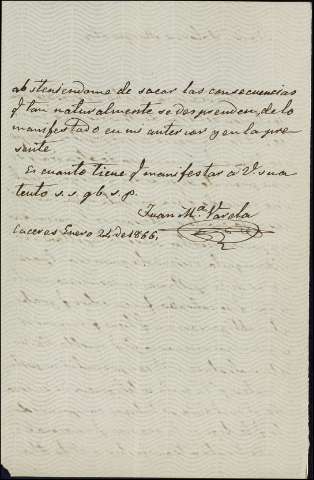 absteniendome de sacar las consecuencias
q̃ tan naturalmente se desprenden, de lo
manifestado en mi anterior y en la pre
sente.
Es cuanto tiene q̃ manifestar a V. su a
tento s. s. q. b. s. p.
Juan Mª. Varela
Caceres Enero 24 de 1866,